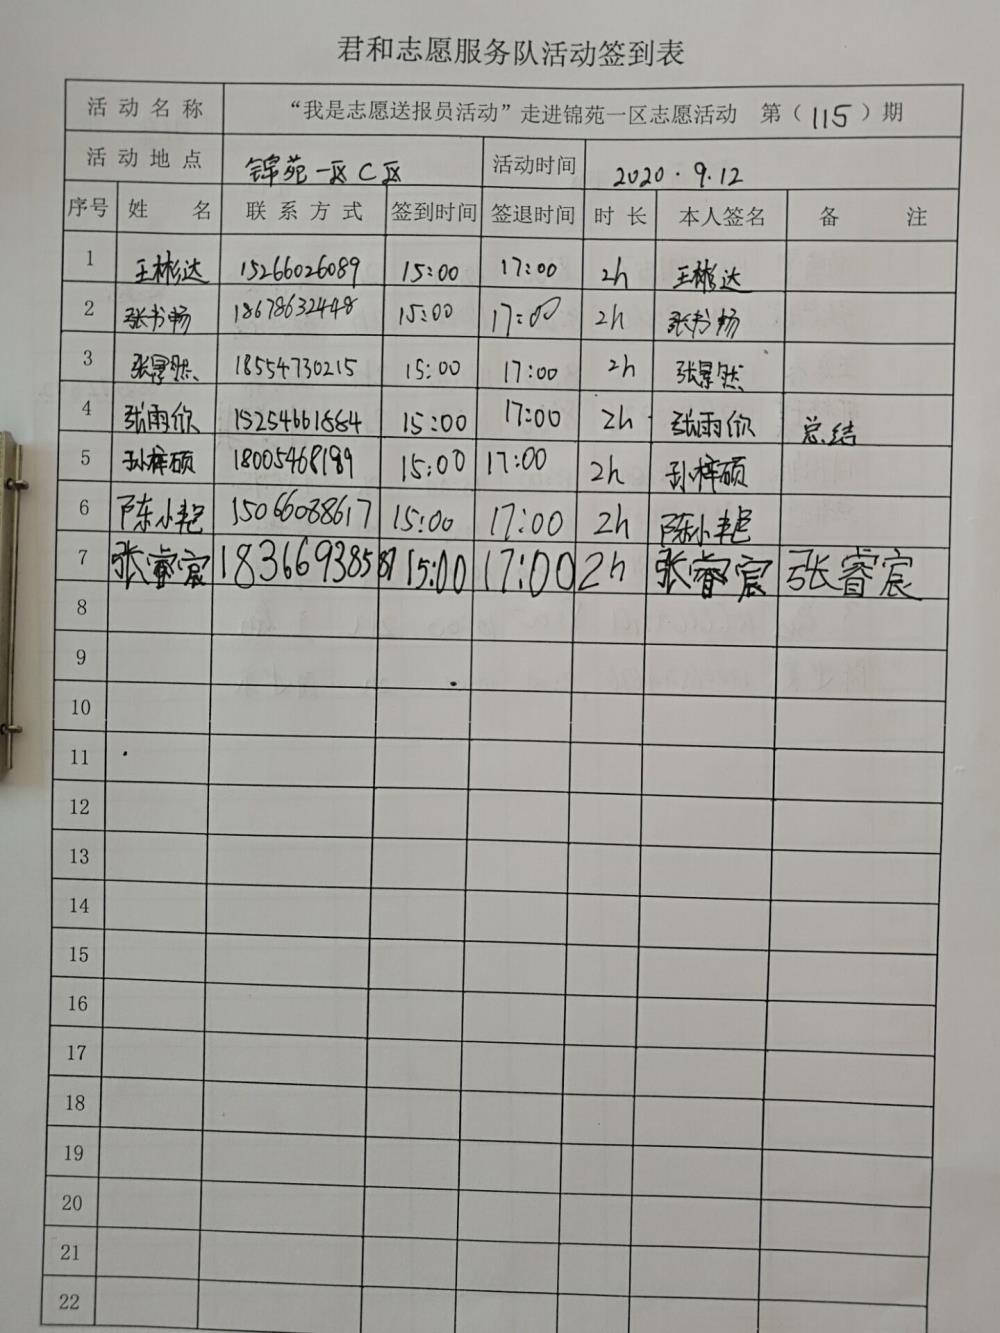 君和志愿服务队活动签到表
活动名称 “我是志愿送报员活动”走进锦苑一区志愿活动 第（115）期
活动地点 锦苑一区C区 活动时间 2020.9.12
序号 姓名 联系方式 签到时间 签退时间 时长 本人签名 备注
1 王彬达 15266026089 15:00 17:00 2h 王彬达
2 张书畅 18678632448 15:00 17:00 2h 张书畅
3 张景然 18554730215 15:00 17:00 2h 张景然
4 张雨欣 15254661884 15:00 17:00 2h 张雨欣 总结
5 孙梓硕 18005468189 15:00 17:00 2h 孙梓硕
6 陈小艳 15066088617 15:00 17:00 2h 陈小艳
7 张睿宸 18366938587 15:00 17:00 2h 张睿宸 张睿宸
8
9
10
11
12
13
14
15
16
17
18
19
20
21
22